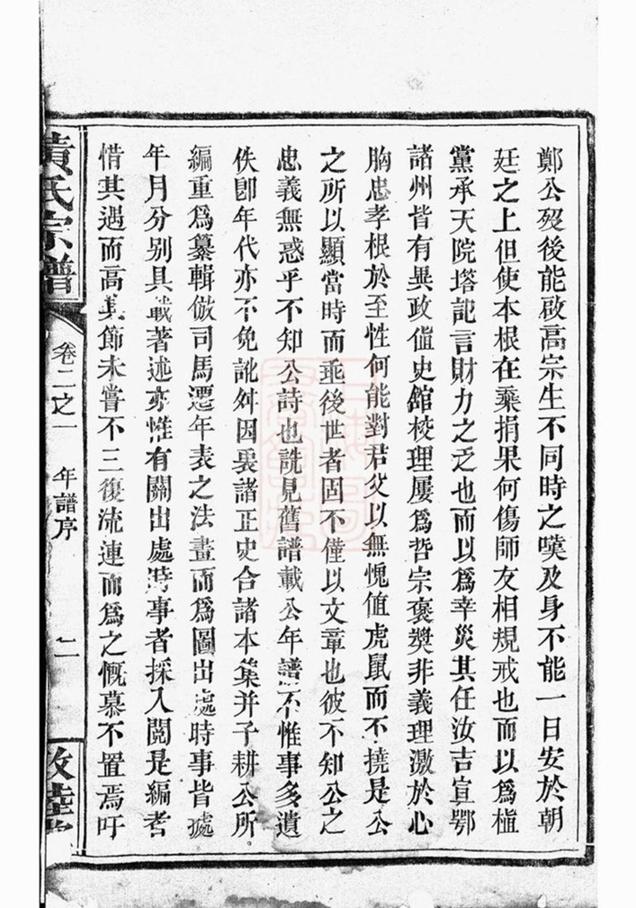 鄭公歿後能啟高宗生不同時之嘆及身不能一日安於朝
廷之上但使本根在棄捐果何傷師友相規戒也而以為植
黨承天院塔記言財力之乏也而以為幸災其任汝吉宣鄂
諸州皆有異政值史館校理屢為哲宗褒獎非義理激於心
胸忠孝根於至性何能對君父以無愧值虎鼠而不撓是公
之所以顯當時而垂後世者固不僅以文章也彼不知公之
忠義無惑乎不知公詩也詵見舊譜載公年譜不惟事多遺
佚卽年代亦不免訛舛因裒諸正史合諸本集并子耕公所
編重為纂輯倣司馬遷年表之法畫而為圖出處時事皆據
年月分別具載著述亦惟有關出處時事者採入閱是編者
惜其遇而高其節未嘗不三復流連而為之慨慕不置焉吁
黃氏宗譜
卷二之一
年譜序
二
敦睦堂